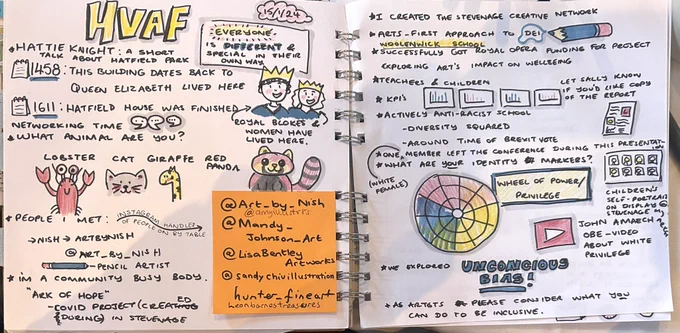 HVAF
15/1/24
EVERYONE
IS DIFFERENT &
SPECIAL IN THEIR
OWN WAY
*HATTIE KNIGHT: A SHORT
TALK ABOUT HATFIELD PARK
1458: THIS BUILDING DATES BACK TO
QUEEN ELIZABETH LIVED HERE
1611: HATFIELD HOUSE WAS FINISHED
ROYAL BLOKES &
WOMEN HAVE
LIVED HERE.
NETWORKING TIME
*WHAT ANIMAL ARE YOU?
LOBSTER CAT GIRAFFE RED
PANDA
*PEOPLE I MET:
INSTAGRAM HANDLES
OF PEOPLE ON MY TABLE
→NISH → ARTBYNISH
@ART_BY_NISH
→ PENCIL ARTIST
*I'M A COMMUNITY BUSY BODY.
"ARK OF HOPE"
-COVID PROJECT (CREATED
(DURING) IN STEVENAGE
@Art_by_Nish
@Mandy_
Johnson_Art
@LisaBentley
Artworks
@sandychivillustration
hunter_fineart
leonbarnestreasures
*I CREATED THE STEVENAGE CREATIVE NETWORK
*ARTS-FIRST APPROACH TO DEI
WOOLENWICK SCHOOL
*SUCCESSFULLY GOT ROYAL OPERA FUNDING FOR PROJECT
EXPLORING ART'S IMPACT ON WELLBEING
*TEACHERS & CHILDREN
LET SALLY KNOW
IF YOU'D LIKE COPY
OF THE REPORT
*KPI's
*ACTIVELY ANTI-RACIST SCHOOL
-DIVERSITY SQUARED
-AROUND TIME OF BREXIT VOTE
*ONE MEMBER LEFT THE CONFERENCE DURING THIS PRESENTATION
(WHITE
FEMALE)
*WHAT ARE YOUR IDENTITY MARKERS?
WHEEL OF POWER/
PRIVILEGE
CHILDREN'S
SELF-PORTRAITS
ON DISPLAY @
STEVENAGE
JOHN AMAECHI
OBE - VIDEO
ABOUT WHITE
PRIVILEGE
*WE EXPLORED UNCONCIOUS
BIAS!
*AS ARTISTS PLEASE CONSIDER WHAT YOU
CAN DO TO BE INCLUSIVE.